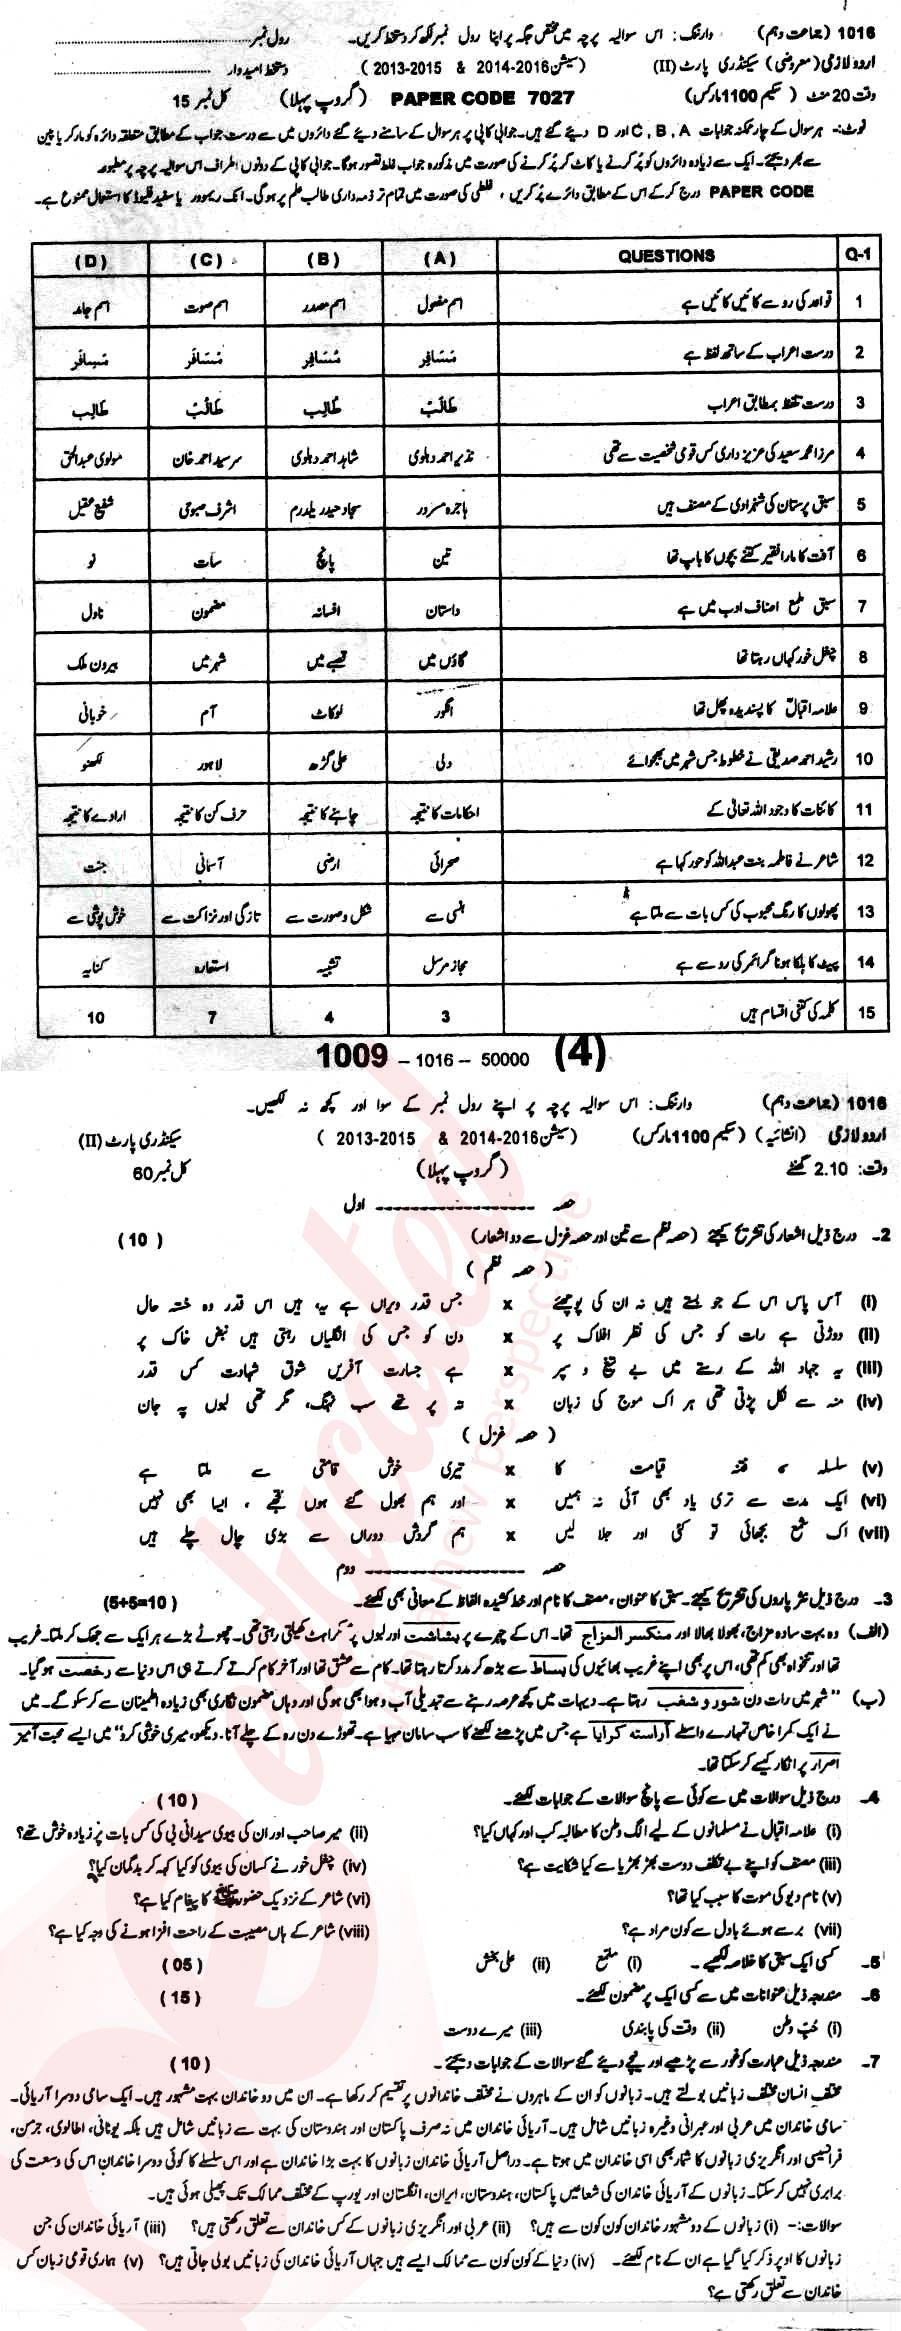 1016 (جماعت دہم) وارننگ: اس سوالیہ پرچہ میں مختص جگہ پر اپنا رول نمبر لکھ کر دستخط کریں۔ رول نمبر
اردو لازمی (معروضی) سیکنڈری پارٹ (II) (سیشن 2014-2016 & 2013-2015) دستخط امیدوار
وقت 20 منٹ (سکیم 1100 مارکس) PAPER CODE 7027 (گروپ پہلا) کل نمبر 15
نوٹ:- ہر سوال کے چار ممکنہ جوابات A, B, C اور D دیئے گئے ہیں۔ جوابی کاپی پر ہر سوال کے سامنے دیئے گئے دائروں میں سے درست جواب کے مطابق متعلقہ دائرہ کو مارکر یا پین
سے بھر دیجئے۔ ایک سے زیادہ دائروں کو پُر کرنے یا کاٹ کر پُر کرنے کی صورت میں مذکورہ جواب غلط تصور ہوگا۔ جوابی کاپی کے دونوں اطراف اس سوالیہ پرچہ پر مطبوعہ
PAPER CODE درج کر کے اس کے مطابق دائرے پُر کریں، غلطی کی صورت میں تمام تر ذمہ داری طالب علم پر ہوگی۔ انک ریموور یا سفید فلیوڈ کا استعمال ممنوع ہے۔
Q-1 QUESTIONS (A) (B) (C) (D)
1 قواعد کی رو سے کائیں کائیں ہے اسم مفعول اسم مصدر اسم صوت اسم جامد
2 درست اعراب کے ساتھ لفظ ہے
3 درست تلفظ بمطابق اعراب
4 مرزا محمد سعید کی عزیز داری کس قومی شخصیت سے تھی نذیر احمد دہلوی شاہد احمد دہلوی سر سید احمد خان مولوی عبدالحق
5 سبق پرستان کی شہزادی کے مصنف ہیں ہاجرہ مسرور سجاد حیدر یلدرم اشرف صبوحی شفیع عقیل
6 آفت کا مارا فقیر کتنے بچوں کا باپ تھا تین پانچ سات نو
7 سبق ملمع اصناف ادب میں ہے داستان افسانہ مضمون ناول
8 چغل خور کہاں رہتا تھا گاؤں میں قصبے میں شہر میں بیرون ملک
9 علامہ اقبالؒ کا پسندیدہ پھل تھا انگور لوکاٹ آم خوبانی
10 رشید احمد صدیقی نے خطوط جس شہر میں بھجوائے دلی علی گڑھ لاہور لکھنو
11 کائنات کا وجود اللہ تعالیٰ کے احکامات کا نتیجہ چاہنے کا نتیجہ حرف کن کا نتیجہ ارادے کا نتیجہ
12 شاعر نے فاطمہ بنت عبداللہ کو حور کہا ہے صحرائی ارضی آسمانی جنت
13 پھولوں کا رنگ محبوب کی کس بات سے ملتا ہے ہنسی سے شکل و صورت سے تازگی اور نزاکت سے خوش پوشی سے
14 پیٹ کا ہلکا ہونا گرائمر کی رو سے ہے مجاز مرسل تشبیہ استعارہ کنایہ
15 کلمہ کی کتنی اقسام ہیں 3 4 7 10
1009 – 1016 – 50000 (4)
1016 (جماعت دہم) وارننگ: اس سوالیہ پرچہ پر اپنے رول نمبر کے سوا اور کچھ نہ لکھیں۔
اردو لازمی (انشائیہ) (سکیم 1100 مارکس) (سیشن 2014-2016 & 2013-2015) سیکنڈری پارٹ (II)
وقت: 2.10 گھنٹے (گروپ پہلا) کل نمبر 60
حصہ اول
2۔ درج ذیل اشعار کی تشریح کیجئے (حصہ نظم سے تین اور حصہ غزل سے دو اشعار) (10)
(حصہ نظم)
(i) آس پاس اس کے جو بستے ہیں نہ ان کی پوچھئے x جس قدر ویراں ہے یہ، ہیں اس قدر وہ خستہ حال
(ii) دوڑتی ہے رات کو جس کی نظر افلاک پر x دن کو جس کی انگلیاں رہتی ہیں نبض خاک پر
(iii) یہ جہاد اللہ کے رستے میں بے تیغ و سپر x ہے جسارت آفریں شوق شہادت کس قدر
(iv) منہ سے نکل پڑتی تھی ہر اک موج کی زبان x تہ پر تھے سب نہنگ، مگر تھی لبوں پہ جان
(حصہ غزل)
(v) سلسلہ فتنہ قیامت کا x تیری خوش قامتی سے ملتا ہے
(vi) ایک مدت سے تری یاد بھی آئی نہ ہمیں x اور ہم بھول گئے ہوں تجھے، ایسا بھی نہیں
(vii) اک شمع بجھائی تو کئی اور جلا لیں x ہم گردش دوراں سے بڑی چال چلے ہیں
حصہ دوم
3۔ درج ذیل نثر پاروں کی تشریح کیجئے۔ سبق کا عنوان، مصنف کا نام اور خط کشیدہ الفاظ کے معانی بھی لکھئے۔ (5+5=10)
(الف) وہ بہت سادہ مزاج، بھولا بھالا اور منکسر المزاج تھا۔ اس کے چہرے پر بشاشت اور لبوں پر مسکراہٹ کھیلتی رہتی تھی۔ چھوٹے بڑے ہر ایک سے جھک کر ملتا۔ غریب
تھا اور تنخواہ بھی کم تھی، اس پر بھی اپنے غریب بھائیوں کی بساط سے بڑھ کر مدد کرتا رہتا تھا۔ کام سے عشق تھا اور آخر کام کرتے کرتے ہی اس دنیا سے رخصت ہو گیا۔
(ب) "شہر میں رات دن شور و شغب رہتا ہے۔ دیہات میں کچھ عرصہ رہنے سے تبدیلی آب و ہوا بھی ہو گی اور وہاں مضمون نگاری بھی زیادہ اطمینان سے کر سکو گے۔ میں
نے ایک کمرا خاص تمہارے واسطے آراستہ کرایا ہے جس میں پڑھنے لکھنے کا سب سامان مہیا ہے۔ تھوڑے دن رہ کے چلے آنا۔ دیکھو، میری خوشی کرو" میں ایسے محبت آمیز
اصرار پر انکار کیسے کر سکتا تھا۔
4۔ درج ذیل سوالات میں سے کوئی سے پانچ سوالات کے جوابات لکھئے۔ (10)
(i) علامہ اقبال نے مسلمانوں کے لیے الگ وطن کا مطالبہ کب اور کہاں کیا؟ (ii) میر صاحب اور ان کی بیوی سیدانی بی کس بات پر زیادہ خوش تھے؟
(iii) مصنف کو اپنے بے تکلف دوست بھڑبھڑیا سے کیا شکایت ہے؟ (iv) چغل خور نے کسان کی بیوی کو کیا کہہ کر بدگمان کیا؟
(v) نام دیو کی موت کا سبب کیا تھا؟ (vi) شاعر کے نزدیک حضورﷺ کا پیغام کیا ہے؟
(vii) برسے ہوئے بادل سے کون مراد ہے؟ (viii) شاعر کے ہاں مصیبت کے راحت افزا ہونے کی وجہ کیا ہے؟
5۔ کسی ایک سبق کا خلاصہ لکھیے۔ (i) ملمع (ii) علی بخش (05)
6۔ مندرجہ ذیل عنوانات میں سے کسی ایک پر مضمون لکھئے۔ (15)
(i) حُبِ وطن (ii) وقت کی پابندی (iii) میرے دوست
7۔ مندرجہ ذیل عبارت کو غور سے پڑھیے اور نیچے دیے گئے سوالات کے جوابات دیجئے۔ (10)
مختلف انسان مختلف زبانیں بولتے ہیں۔ زبانوں کو ان کے ماہروں نے مختلف خاندانوں پر تقسیم کر رکھا ہے۔ ان میں دو خاندان بہت مشہور ہیں۔ ایک سامی دوسرا آریائی۔
سامی خاندان میں عربی اور عبرانی وغیرہ زبانیں شامل ہیں۔ آریائی خاندان میں نہ صرف پاکستان اور ہندوستان کی بہت سے زبانیں شامل ہیں بلکہ یونانی، اطالوی، جرمن،
فرانسیسی اور انگریزی زبانوں کا شمار بھی اسی خاندان میں ہوتا ہے۔ دراصل آریائی خاندان زبانوں کا بہت بڑا خاندان ہے اور اس سلسلے کا کوئی دوسرا خاندان اس کی وسعت کی
برابری نہیں کر سکتا۔ زبانوں کے آریائی خاندان کی شعاعیں پاکستان، ہندوستان، ایران، انگلستان اور یورپ کے مختلف ممالک تک پھیلی ہوئی ہیں۔
سوالات:- (i) زبانوں کے دو مشہور خاندان کون کون سے ہیں؟ (ii) عربی اور انگریزی زبانوں کے کس خاندان سے تعلق رکھتی ہیں؟ (iii) آریائی خاندان کی جن
زبانوں کا اوپر ذکر کیا گیا ہے ان کے نام لکھئے۔ (iv) دنیا کے کون کون سے ممالک ایسے ہیں جہاں آریائی خاندان کی زبانیں بولی جاتی ہیں؟ (v) ہماری قومی زبان کس
خاندان سے تعلق رکھتی ہے؟